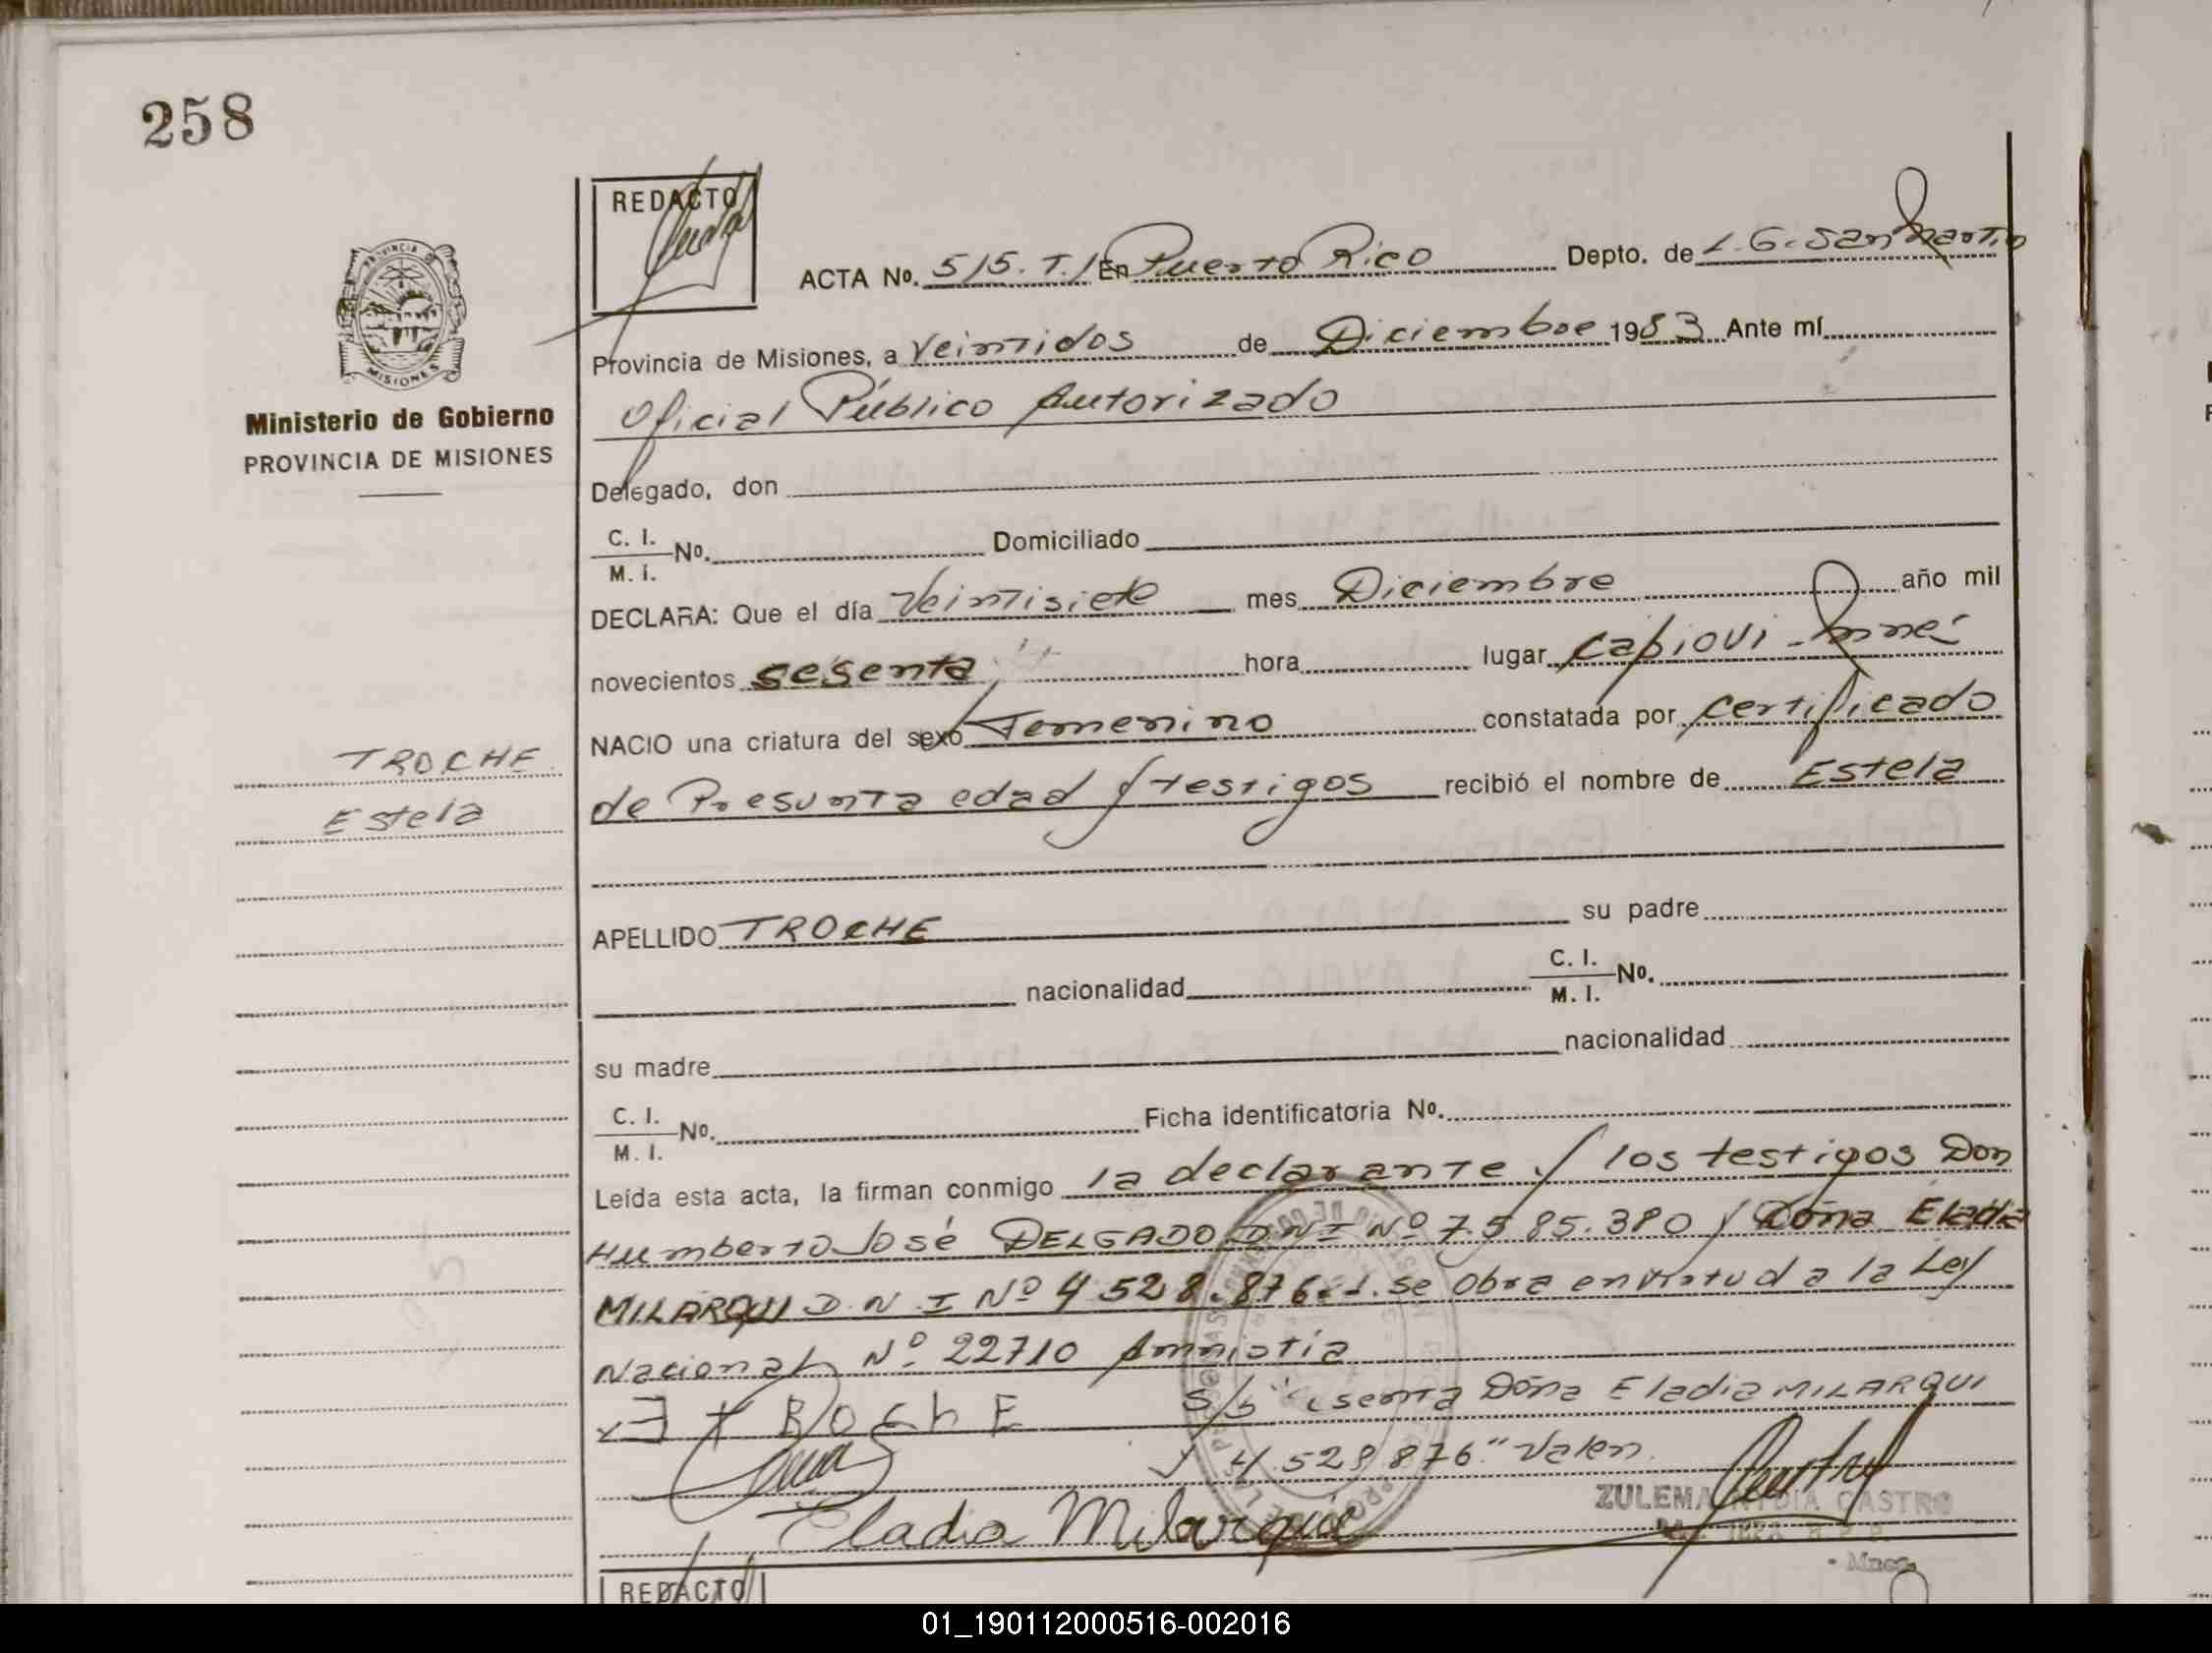 258
REDACTO
ACTA No. 515. T. I En Puerto Rico Depto. de L. G. San Martin
PROVINCIA
MISIONES
Provincia de Misiones, a Veintidos de Diciembre 1983 Ante mí
Oficial Público Autorizado
Ministerio de Gobierno
PROVINCIA DE MISIONES
Delegado, don
C. I.
M. I. No. Domiciliado
DECLARA: Que el día Veintisiete mes Diciembre año mil
novecientos sesenta hora lugar Capiovi - Miné
NACIO una criatura del sexo Femenino constatada por certificado
TROCHE
de Presunta edad y testigos recibió el nombre de Estela
Estela
APELLIDO TROCHE su padre
nacionalidad C. I.
M. I. No.
su madre nacionalidad
C. I.
M. I. No. Ficha identificatoria No.
Leída esta acta, la firman conmigo la declarante y los testigos Don
Humberto José DELGADO D N I Nº 7.585.380 y Doña Eladia
MILARQUI D. N. I Nº 4 528.876 se obra en virtud a la Ley
Nacional Nº 22710 Amnistía
E TROChE S/b "esenta Doña Eladia MILARQUI
y 4.528 876" Valen.
Eladia Milarqui
ZULEMA NYDIA CASTRO
REDACTO
01_190112000516-002016